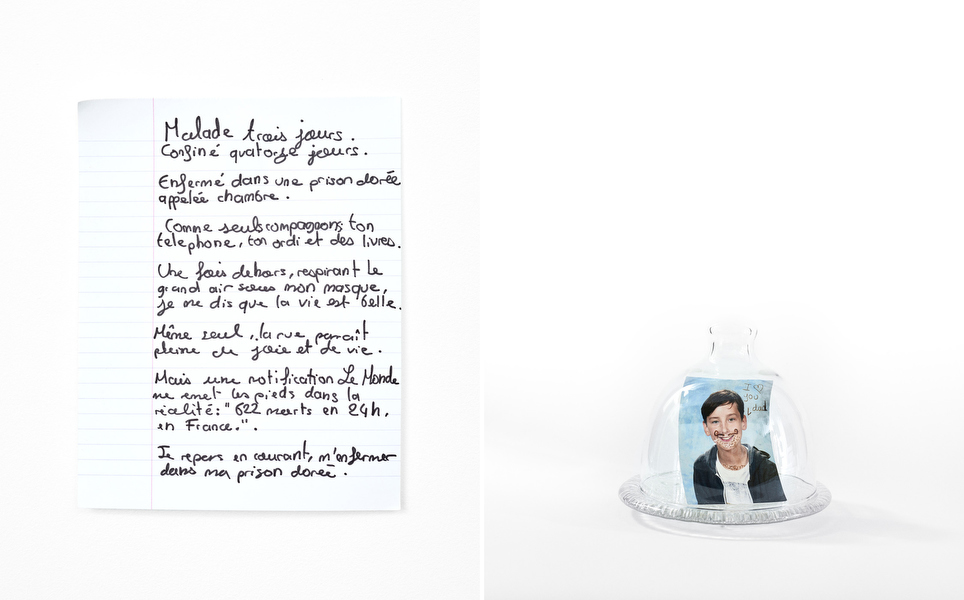 Malade trois jours.
Confiné quatorze jours.
Enfermé dans une prison dorée
appelée chambre.
Comme seuls compagnons ton
telephone, ton ordi et des livres.
Une fois dehors, respirant le
grand air sous mon masque,
je me dis que la vie est belle.
Même seul, la rue paraît
pleine de joie et de vie.
Mais une notification Le Monde
me remet les pieds dans la
réalité: "622 morts en 24h,
en France.".
Je repars en courant, m'enfermer
dans ma prison dorée.
I ♡
you
dad